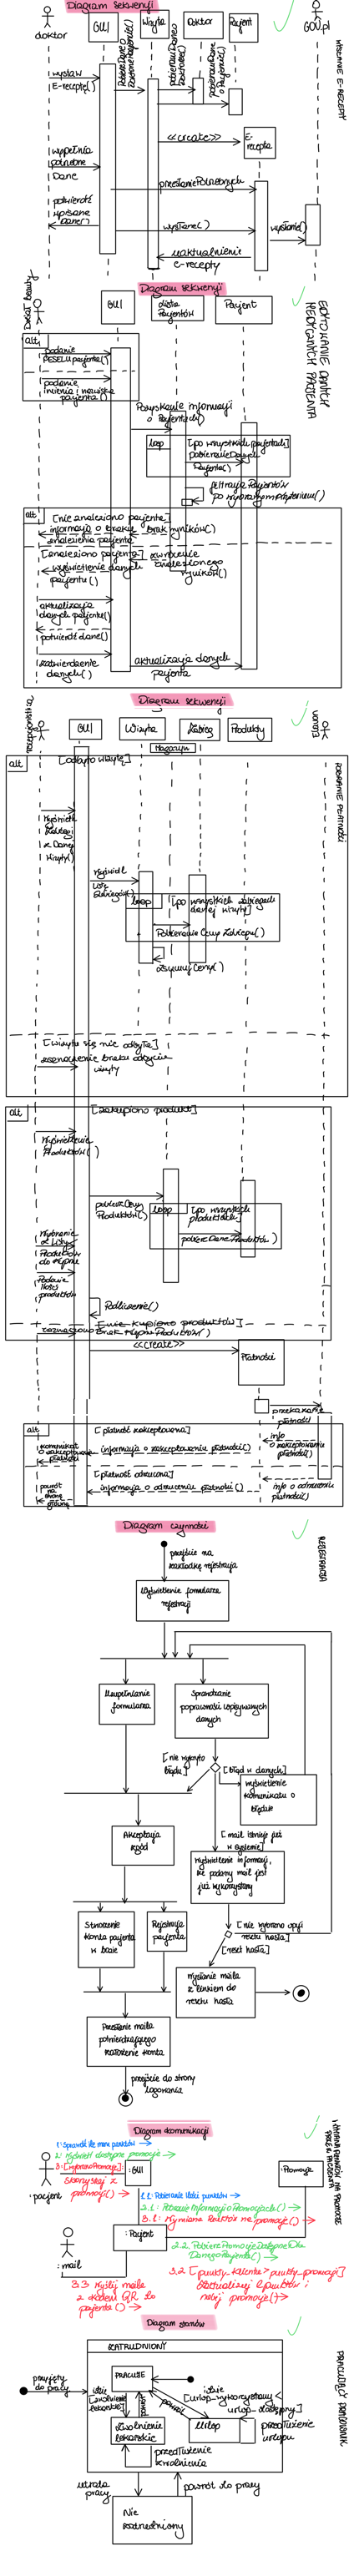 Diagram sekwencji
doktor
GUI
Wizyta
Doktor
Pacjent
GOV.pl
WYSŁANIE E-RECEPTY
wystaw
E-receptę()
Pobierz Dane o
<<create>>
E-
recepta
wypełnia
potrzebne
Dane
potwierdź
wpisane
Dane()
wysłane()
wysłane()
uaktualnienie
e-recepty
Diagram sekwencji
GUI
Lista
Pacjentów
Pacjent
EDYTOWANIE DANYCH
MEDYCZNYCH PACJENTA
alt
podanie
PESELU pacjenta()
podanie
imienia i nazwiska
pacjenta()
Pozyskanie informacji
o Pacjentach()
loop
[po wszystkich pacjentach]
pobieranie Danych
Pacjenta()
filtracja Pacjentów
alt
[nie znaleziono pacjenta]
informacja o braku
znalezienia pacjenta
brak wyników()
[znaleziono pacjenta]
wyświetlenie danych
pacjenta()
zwrócenie
znalezionego
wyniku()
aktualizacja
danych pacjenta()
potwierdź dane()
zatwierdzenie
danych()
aktualizacja danych
pacjenta
Diagram sekwencji
recepcjonistka
GUI
Wizyta
Zabieg
Produkty
Magazyn
POBRANIE PŁATNOŚCI
alt
[odbyto wizytę]
Wyświetl
Zabiegi
z Danej
Wizyty()
Wyświetl
Listę
Zabiegów()
loop
[po wszystkich zabiegach
danej wizyty]
Pobieranie Ceny Zabiegu()
zsumuj Ceny()
[wizyta się nie odbyła]
zaznaczenie braku odbycia
wizyty
alt
[zakupiono produkt]
Wyświetlenie
Produktów()
pobierz Ceny
Produktów()
loop
[po wszystkich
produktach]
pobierz Dane Produktów()
Wybranie
z Listy
Produktów
do Kupna
Podanie
ilości
produktów
Podliczenie()
[nie kupiono produktów]
zaznaczono brak Kupna Produktów()
<<create>>
Płatności
przekazanie
płatności
alt
[płatność zaakceptowana]
komunikat
o zaakceptowaniu
płatności
informacja o zaakceptowaniu płatności()
info
o zaakceptowaniu
płatności()
[płatność odrzucona]
powrót
na
stronę
główną
informacja o odrzuceniu płatności()
info o odrzuceniu
płatności()
Diagram czynności
REJESTRACJA
przejście na
zakładkę rejestracja
Wyświetlenie formularza
rejestracji
Uzupełnianie
formularza
Sprawdzanie
poprawności wpisywanych
danych
[nie wykryto
błędu]
[błąd w danych]
wyświetlenie
komunikatu o
błędzie
Akceptacja
zgód
[mail istnieje już
w systemie]
Wyświetlenie informacji,
że podany mail jest
już wykorzystany
Stworzenie
konta pacjenta
w bazie
Rejestracja
pacjenta
[nie wybrano opcji
resetu hasła]
[reset hasła]
Wysłanie maila
z linkiem do
resetu hasła
Przesłanie maila
potwierdzającego
założenie konta
przejście do strony
logowania
Diagram komunikacji
1: Sprawdź ile mam punktów
2: Wyświetl dostępne promocje
3: [WybranoPromocję]:
Skorzystaj z
promocji()
: pacjent
:GUI
:Promocje
WYMIANA PUNKTÓW NA PROMOCJE
PRZEZ PACJENTA
1.1: Pobieranie ilości punktów
2.1: Pobierz Informacje o Promocjach()
3.1: Wymiana Punktów na promocję()
:Pacjent
: mail
2.2: Pobierz Promocje Dostępne Dla
Danego Pacjenta()
3.2 [punkty_klienta>punkty_promocji]
Zaktualizuj l.punktów i
nalicz promocję()
3.3 Wyślij maila
z kodem QR do
pacjenta()
Diagram stanów
PRACUJĄCY PRACOWNIK
ZATRUDNIONY
przyjęty
do pracy
PRACUJE
idzie
[zwolnienie
lekarskie]
powrót
powrót
idzie
[urlop_wykorzystany <
urlop_dostępny]
Zwolnienie
lekarskie
Urlop
przedłużenie
urlopu
przedłużenie
zwolnienia
utrata
pracy
powrót do pracy
Nie
zatrudniony